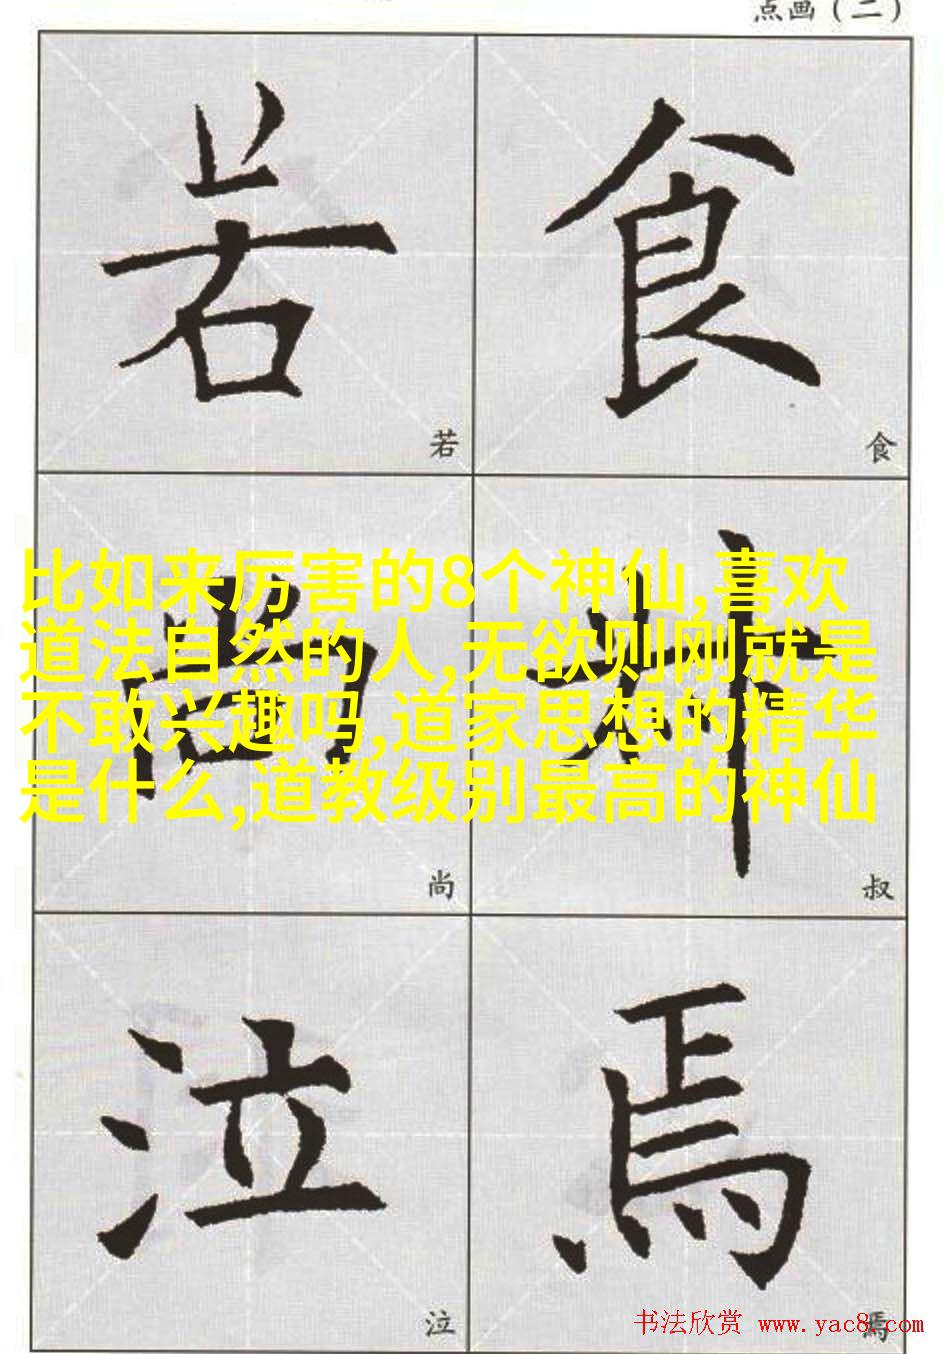 点画（二）
若 食
若 食
比如来厉害的8个神仙,喜欢
道法自然的人,无欲则刚就是
不敢兴趣吗,道家思想的精华
是什么,道教级别最高的神仙
尚 叔
尚 叔
泣 焉
泣 焉
书法欣赏 www.yac8.com